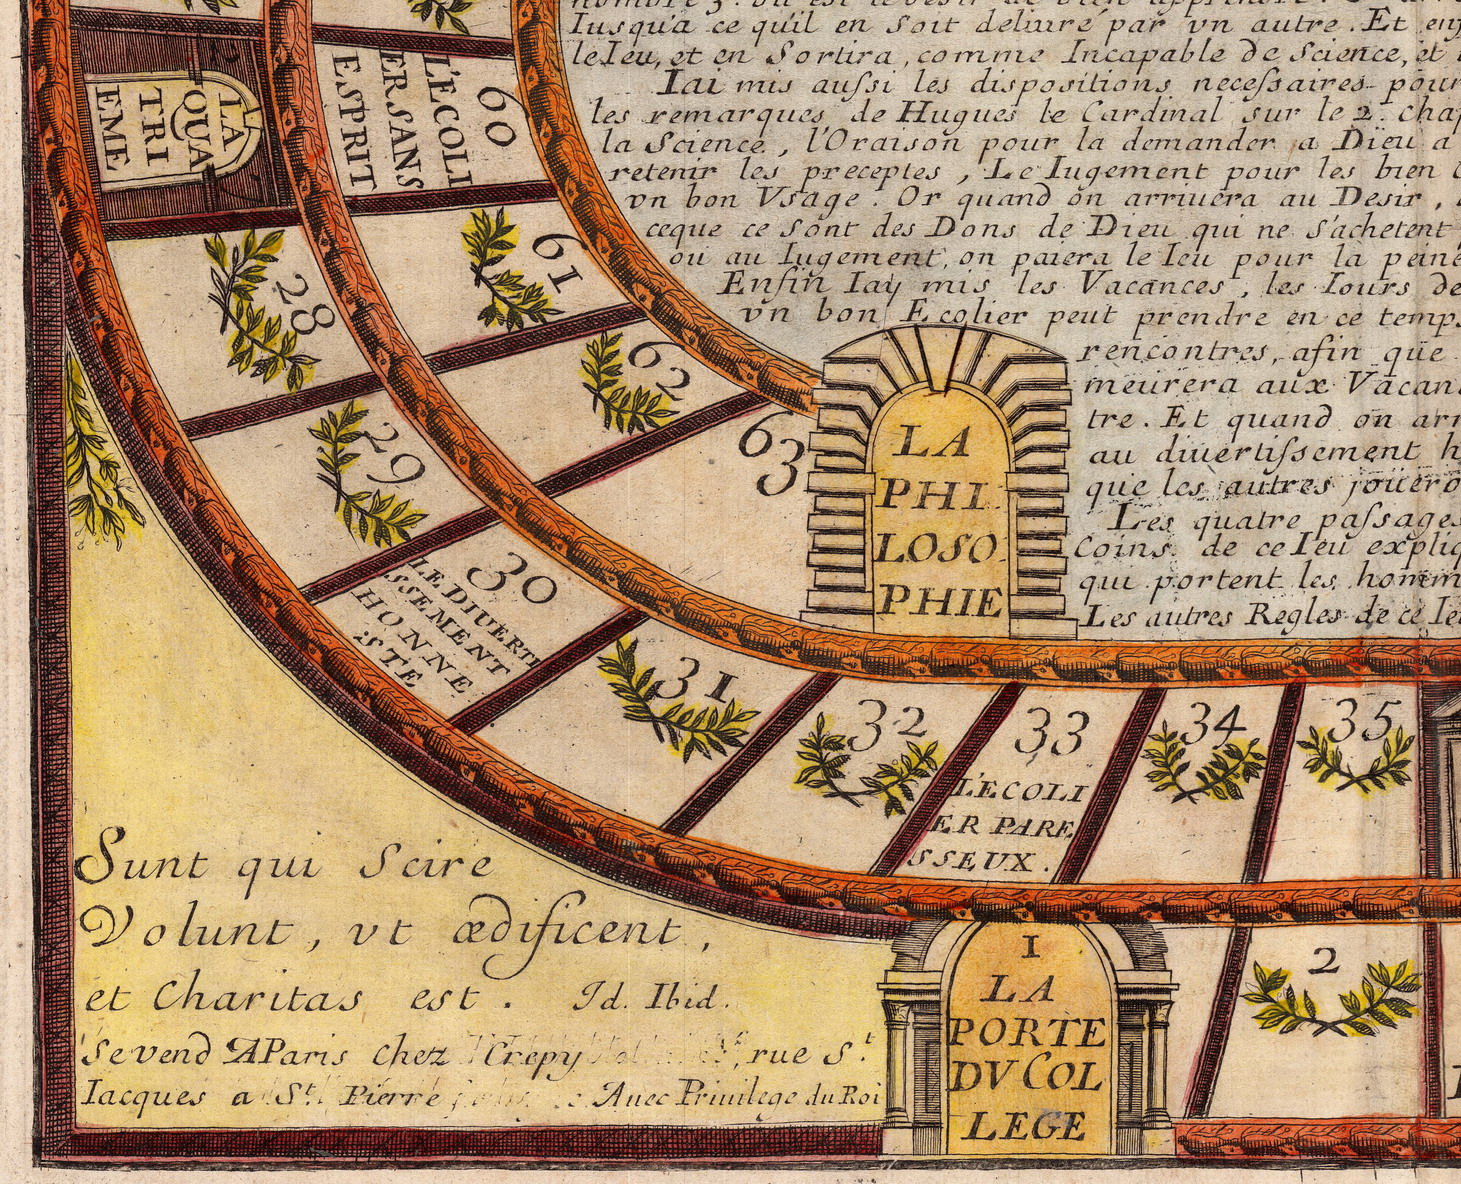 Iusqu'a ce qu'il en soit deliuré par vn autre. Et
le Ieu, et en Sortira, comme Incapable de Science, et
Iai mis aussi les dispositions necessaires pour
les remarques de Hugues le Cardinal sur le 2. chap
la Science, l'Oraison pour la demander a Dieu a
retenir les preceptes, Le Iugement pour les bien
vn bon Vsage. Or quand on arriuera au Desir,
ceque ce sont des Dons de Dieu qui ne s'achetent
ou au Iugement, on paiera le Ieu pour la peine
Enfin Iay mis les Vacances, les Iours de
vn bon Ecolier peut prendre en ce temps
rencontres, afin que
meurera aux Vacan
tre. Et quand on arr
au diuertissement h
que les autres joüero
Les quatre passages
Coins de ce Ieu expliq
qui portent les homm
Les autres Regles de ce Ieu
LA
QUA
TRI
EME
60
L'ECOLI
ER SANS
ESPRIT
61
62
63
LA
PHI
LOSO
PHIE
28
29
30
LE DIUERTI
SSEMENT
HONNE
STE
31
32
33
L'ECOLI
ER PARE
SSEUX.
34
35
1
LA
PORTE
DV COL
LEGE
2
Sunt qui Scire
Volunt, vt ædificent,
et Charitas est. Id. Ibid.
Se vend A Paris chez Crepy rue St.
Iacques a St. Pierre Auec Priuilege du Roi